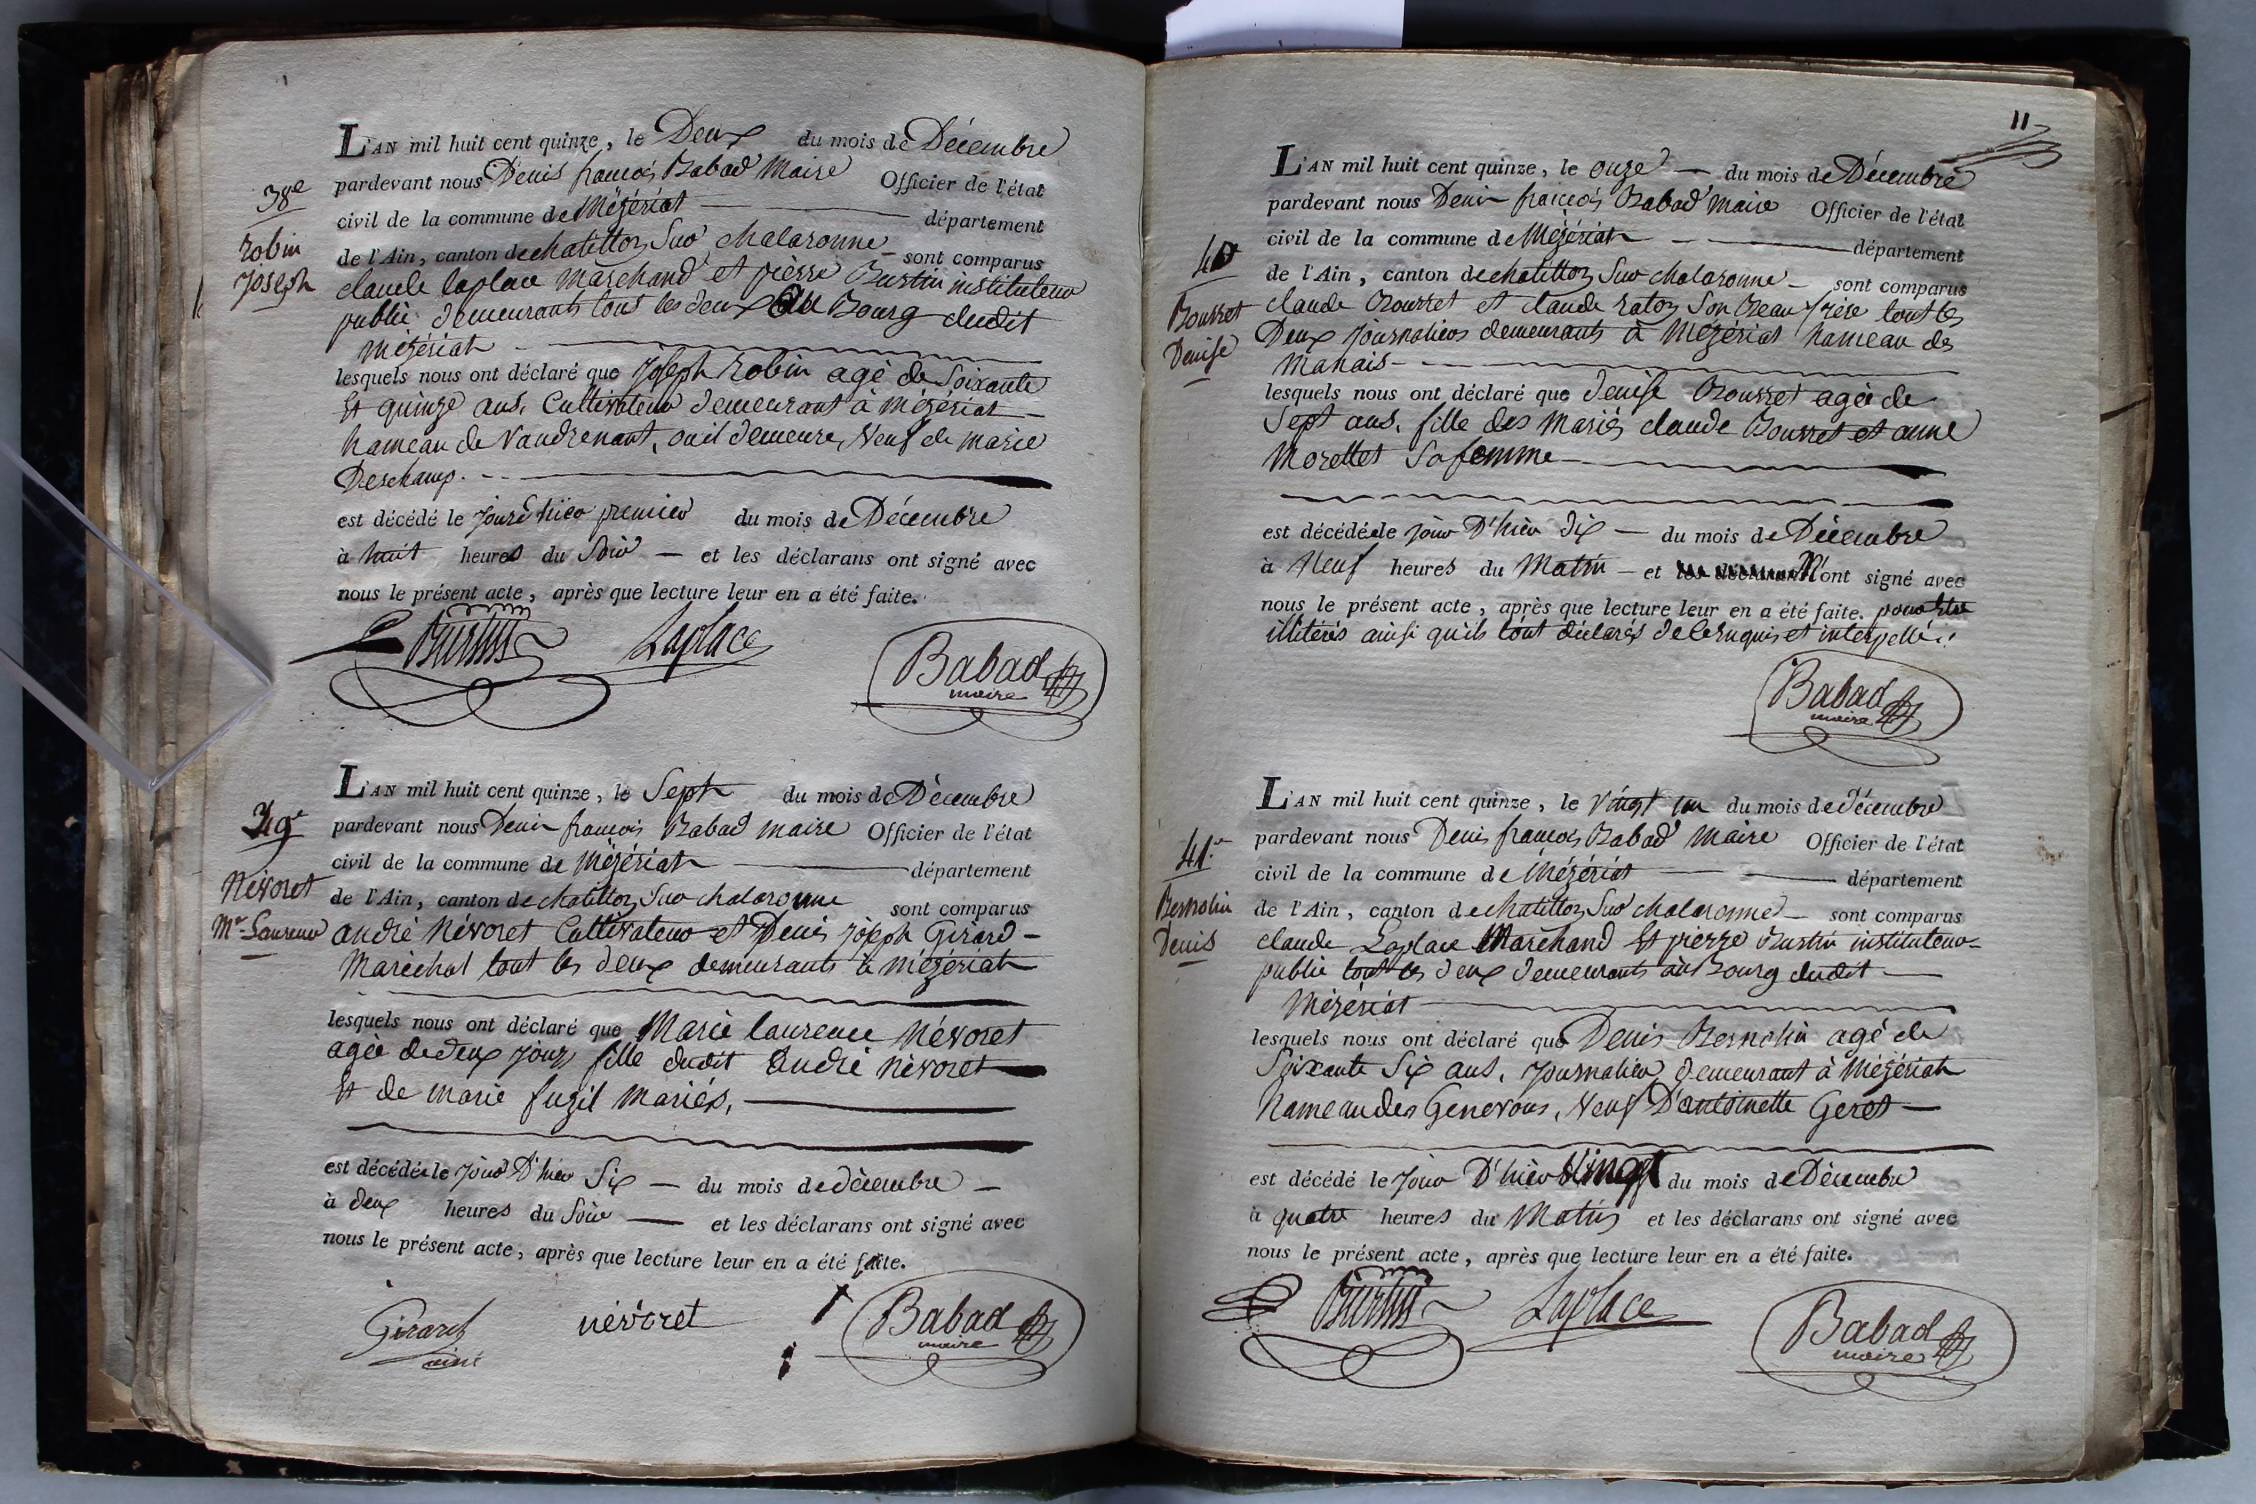 38e
Robin
Joseph
L'AN mil huit cent quinze, le Deux du mois de Décembre
pardevant nous Denis françois Babad Maire Officier de l'état
civil de la commune de Mézériat département
de l'Ain, canton de chatillon Sur chalaronne sont comparus
claude laplace Marchand et pierre Burtin instituteur
public demeurants tous les deux au Bourg dudit
Mézériat
lesquels nous ont déclaré que Joseph Robin agé de Soixante
Et quinze ans, Cultivateur demeurant à Mézériat
hameau de Vaudrenant, ou il demeure, Veuf de marie
Deschamp.
est décédé le jour d'hier premier du mois de Décembre
à huit heures du Soir et les déclarans ont signé avec
nous le présent acte, après que lecture leur en a été faite.
Burtin Laplace Babad
maire
39e
Névoret
Mie Laurence
L'AN mil huit cent quinze, le Sept du mois de Décembre
pardevant nous Denis françois Babad maire Officier de l'état
civil de la commune de Mézériat département
de l'Ain, canton de chatillon Sur chalaronne sont comparus
andré Névoret Cultivateur et Denis joseph Girard
Maréchal tout les deux demeurants à mézériat
lesquels nous ont déclaré que Marie laurence Névoret
agée de deux jours fille dudit André Névoret
Et de marie fuzil Mariés,
est décédée le jour D'hier Six du mois de décembre
à deux heures du Soir et les déclarans ont signé avec
nous le présent acte, après que lecture leur en a été faite.
Girard névoret Babad
ainé maire
11
40
Bourret
Denise
L'AN mil huit cent quinze, le onze du mois de Décembre
pardevant nous Denis françois Babad maire Officier de l'état
civil de la commune de Mézériat département
de l'Ain, canton de chatillon Sur chalaronne sont comparus
claude Bourret et claude raton Son Beau frère tout les
Deux journaliers demeurants à Mézériat hameau des
Manais
lesquels nous ont déclaré que denise Bourret agée de
Sept ans, fille des Mariés claude Bourret et anne
Morellet Sa femme
est décédée le jour D'hier dix du mois de Décembre
à Neuf heures du Matin et les déclarans N'ont signé avec
nous le présent acte, après que lecture leur en a été faite. pour être
illitérés ainsi qu'ils l'ont déclarés de ce requis et interpellé.
Babad
maire
41e
Bernolin
Denis
L'AN mil huit cent quinze, le vingt un du mois de décembre
pardevant nous Denis françois Babad Maire Officier de l'état
civil de la commune de Mézériat département
de l'Ain, canton de chatillon Sur chalaronne sont comparus
claude Laplace Marchand Et pierre Burtin instituteur
public tout les deux demeurants au Bourg dudit
Mézériat
lesquels nous ont déclaré que Denis Bernolin agé de
Soixante Six ans, journalier demeurant à Mézériat
hameau des Genevous, Veuf D'antoinette Geret
est décédé le jour D'hier Vingt du mois de Décembre
à quatre heures du Matin et les déclarans ont signé avec
nous le présent acte, après que lecture leur en a été faite.
Burtin Laplace Babad
maire